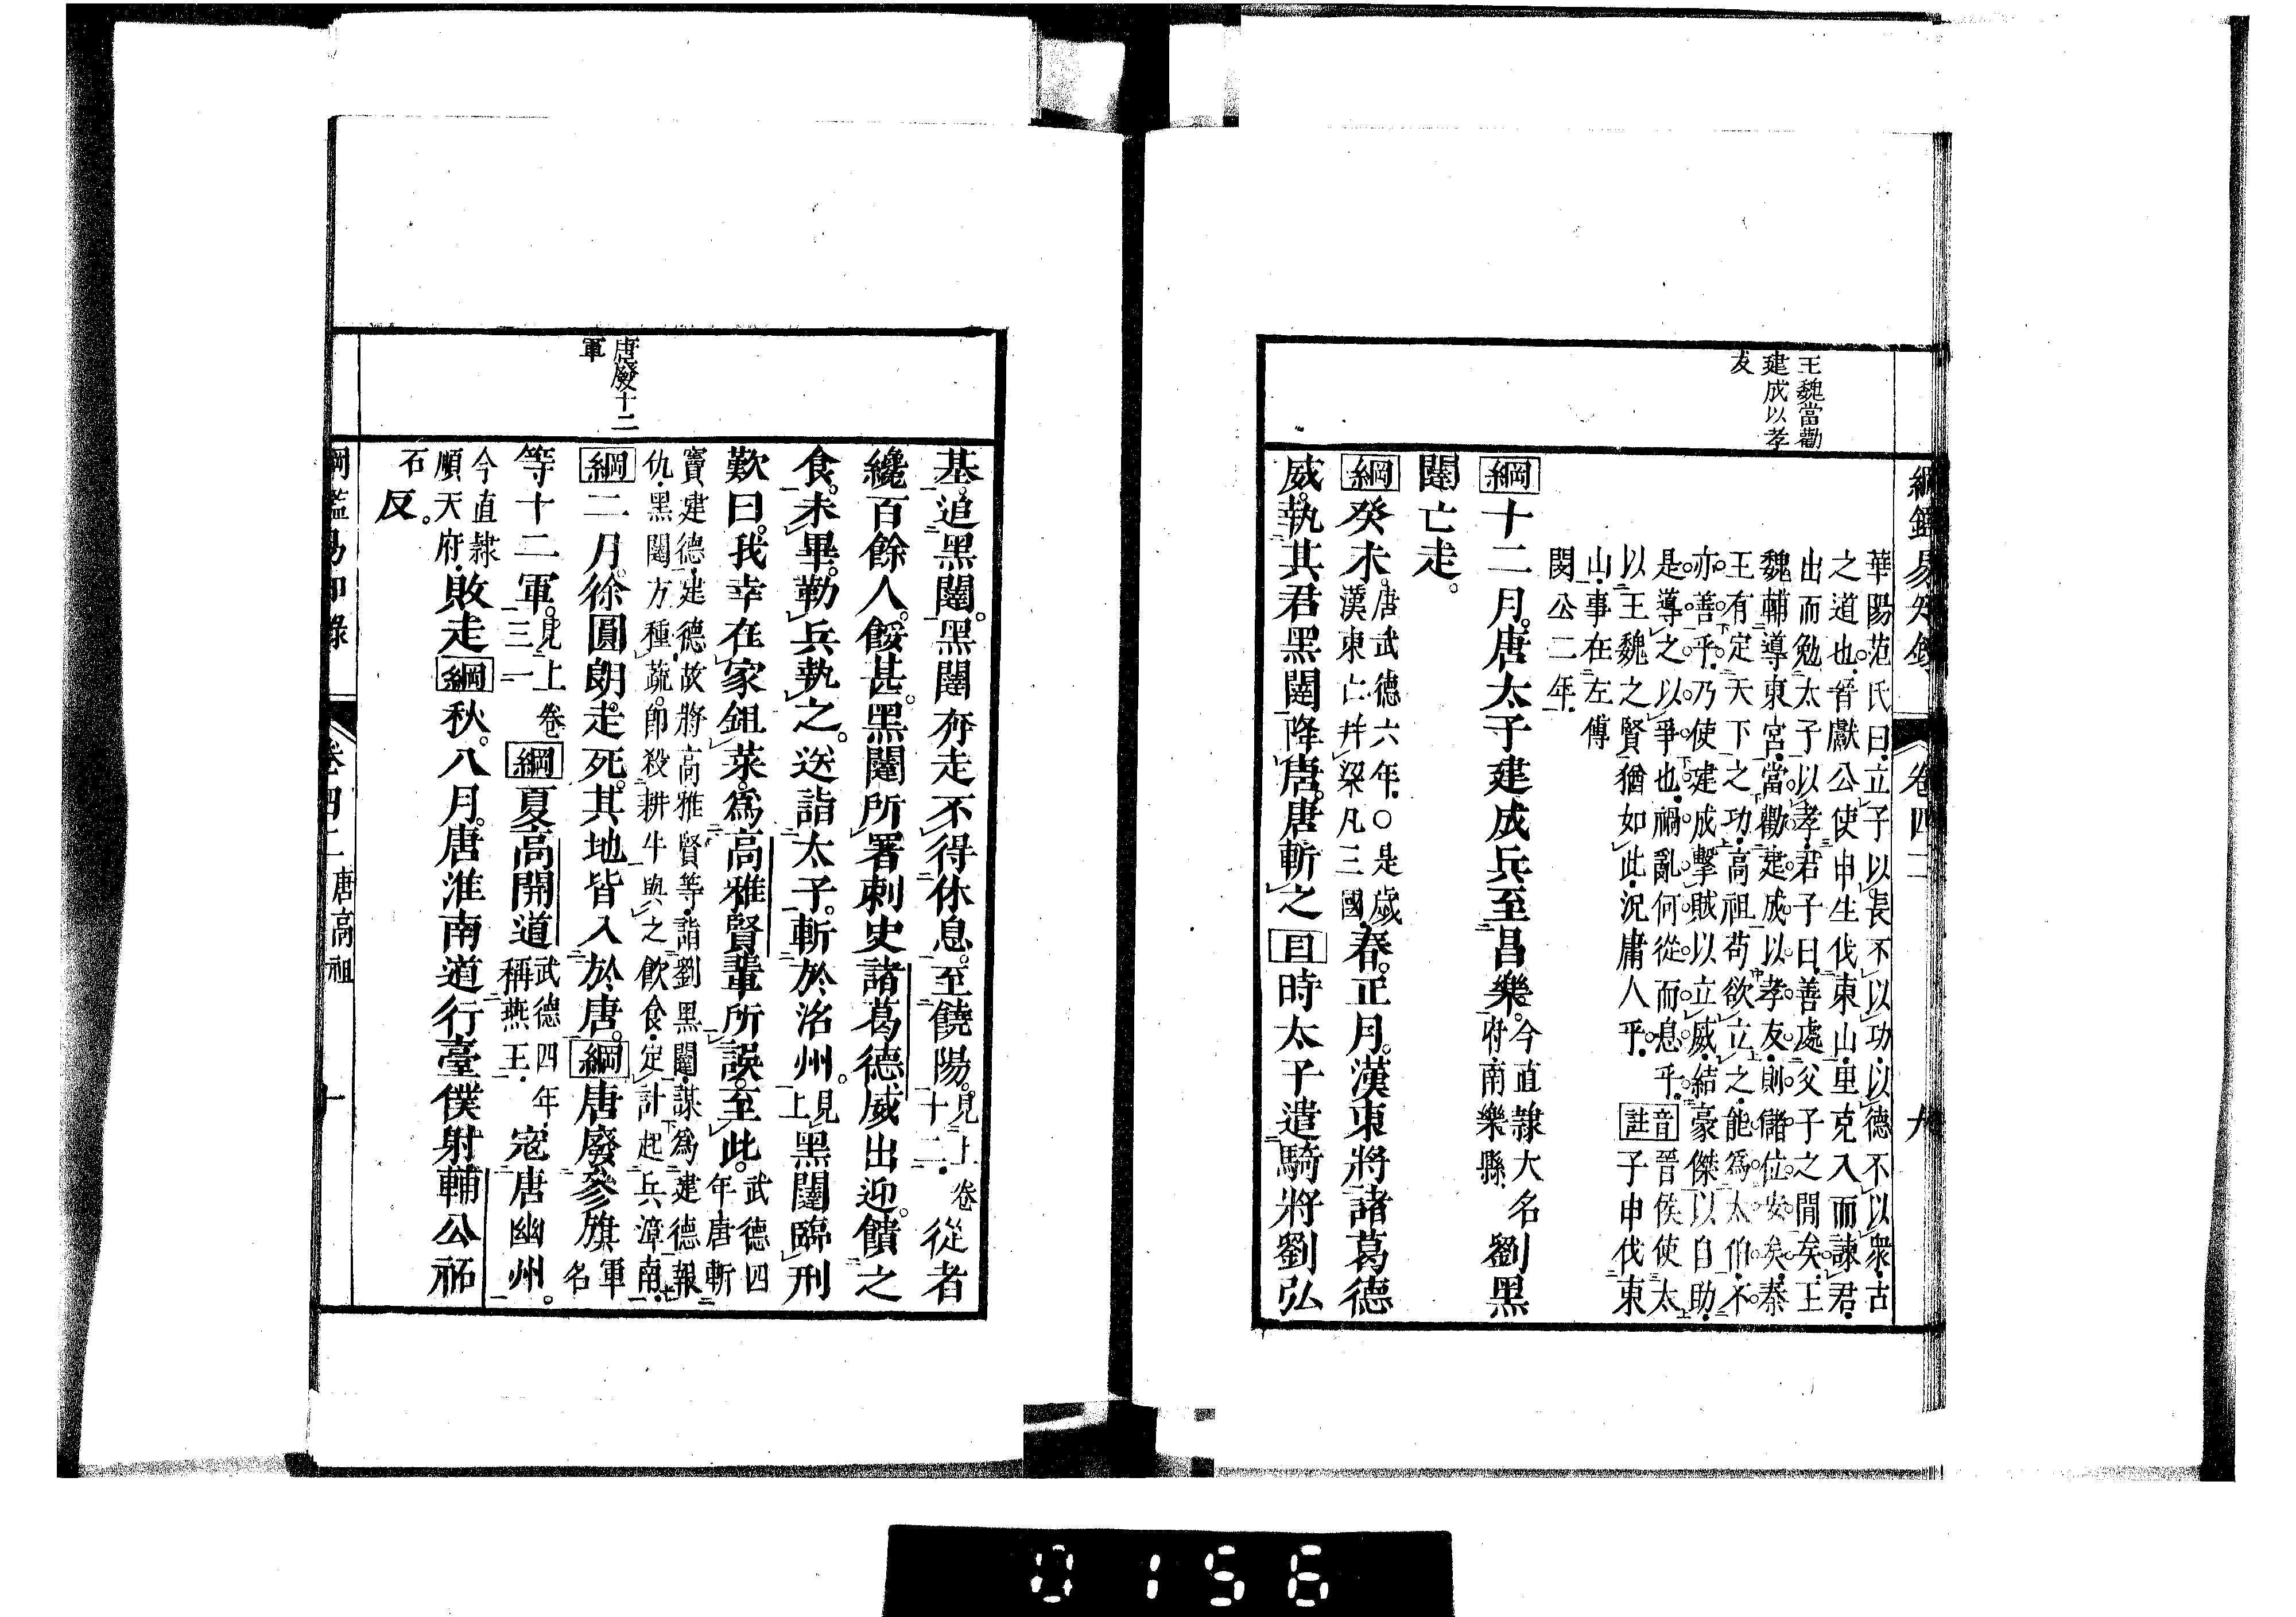 綱鑑易知錄 卷四二 九
王魏當勸
建成以孝
友
華陽范氏曰立子以長不以功以德不以衆古
之道也晉獻公使申生伐東山里克入而諫君
出而勉太子以孝君子曰善處父子之間矣王
魏輔導東宮當勸建成以孝友則儲位安矣秦
王有定天下之功高祖苟欲立之能爲太伯不
亦善乎乃使建成擊賊以立威結豪傑以自助
是導之以爭也禍亂何從而息乎音晉侯使太
以王魏之賢猶如此況庸人乎註子申伐東
山事在左傳
閔公二年
綱十二月唐太子建成兵至昌樂今直隸大名府南樂縣劉黑
闥亡走。
綱癸未唐武德六年○是歲漢東亡幷梁凡三國春正月漢東將諸葛德
威執其君黑闥降唐唐斬之目時太子遣騎將劉弘
基追黑闥黑闥奔走不得休息至饒陽見上卷十二從者
纔百餘人餒甚黑闥所署刺史諸葛德威出迎饋之
食未畢勒兵執之送詣太子斬於洺州見上黑闥臨刑
歎曰我幸在家鉏菜爲高雅賢輩所誤至此武德四年唐斬
竇建德建德故將高雅賢等詣劉黑闥謀爲建德報
仇黑闥方種蔬卽殺耕牛與之飮食定計起兵漳南
綱二月徐圓朗走死其地皆入於唐綱唐廢參旗軍名
等十二軍見上卷三一綱夏高開道武德四年稱燕王寇唐幽州
今直隸順天府敗走綱秋八月唐淮南道行臺僕射輔公祏
石反。
唐廢十二
軍
綱鑑易知錄 卷四二 唐高祖 十
0156